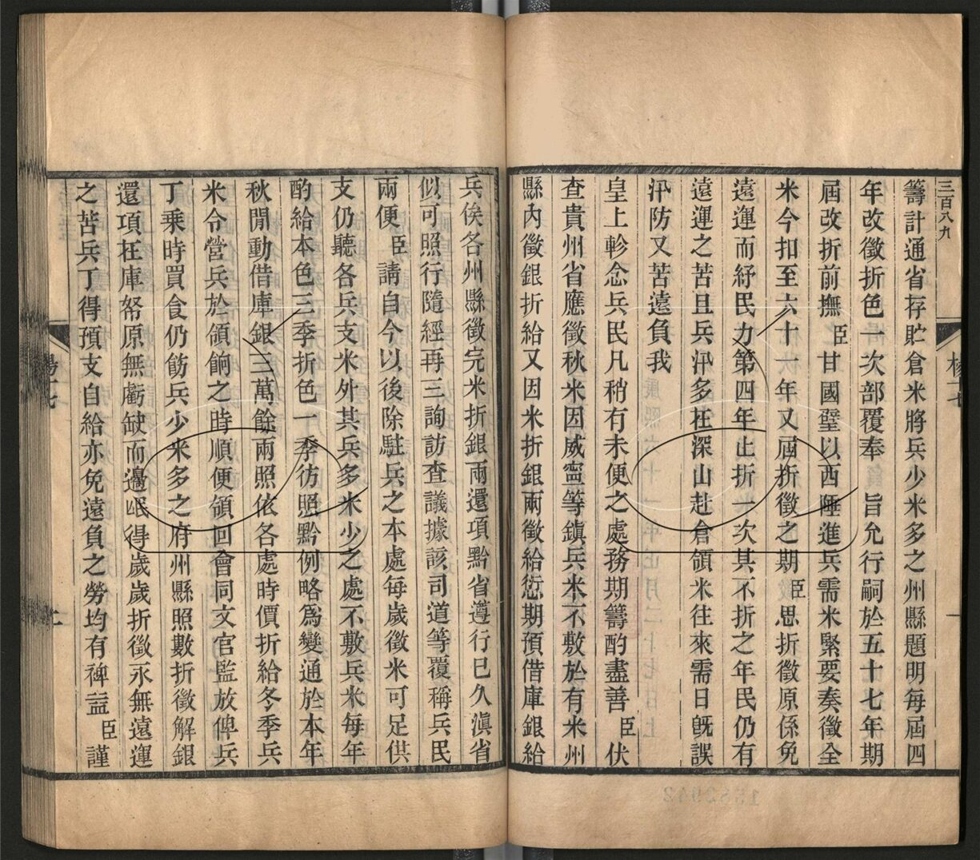 三百八九
籌計通省存貯倉米將兵少米多之州縣題明每屆四
年改徵折色一次部覆奉 旨允行嗣於五十七年期
屆改折前撫臣甘國璧以西陲進兵需米緊要奏徵全
米今扣至六十一年又屆折徵之期臣思折徵原係免
遠運而紓民力第四年止折一次其不折之年民仍有
遠運之苦且兵汛多在深山赴倉領米往來需日旣誤
汛防又苦遠負我
皇上軫念兵民凡稍有未便之處務期籌酌盡善臣伏
查貴州省應徵秋米因威寧等鎮兵米不敷於有米州
縣內徵銀折給又因米折銀兩徵給愆期預借庫銀給
兵俟各州縣徵完米折銀兩還項黔省遵行已久滇省
似可照行隨經再三詢訪查議據該司道等覆稱兵民
兩便臣請自今以後除駐兵之本處每歲徵米可足供
支仍聽各兵支米外其兵多米少之處不敷兵米每年
酌給本色三季折色一季彷照黔例略爲變通於本年
秋閒動借庫銀三萬餘兩照依各處時價折給冬季兵
米令營兵於領餉之時順便領回會同文官監放俾兵
丁乘時買食仍飭兵少米多之府州縣照數折徵解銀
還項在庫帑原無虧缺而邊氓得歲歲折徵永無遠運
之苦兵丁得預支自給亦免遠負之勞均有裨益臣謹